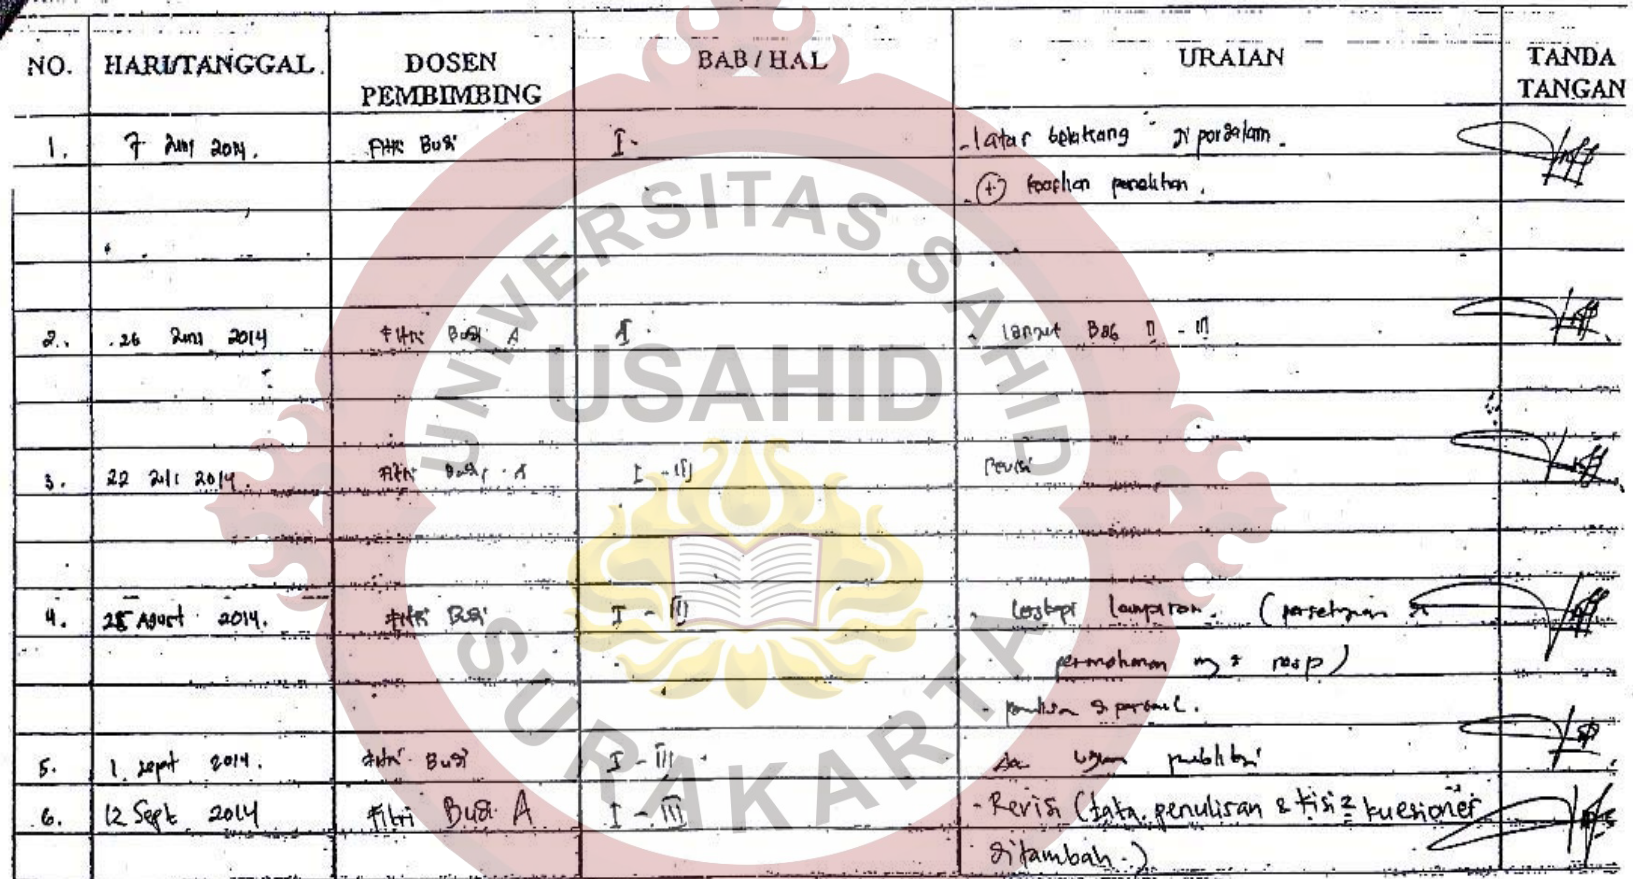 NO. HARI/TANGGAL. DOSEN PEMBIMBING BAB / HAL URAIAN TANDA TANGAN
1. 7 Juni 2014. Fitri Budi I. - latar belakang diperdalam.
+ keaslian penelitian.
2. 26 Juni 2014 Fitri Budi A I - lanjut Bab II - III
3. 22 Juli 2014. Fitri Budi A I - III Revisi
4. 25 Agust 2014. Fitri Budi I - III - lengkapi lampiran. (persetujuan &
permohonan resp)
5. 1 sept 2014. Fitri Budi I - III Acc ujian
6. 12 Sept 2014 Fitri Budi A I - III - Revisi (tata penulisan & kisi2 kuesioner
ditambah.)
UNIVERSITAS SAHID
USAHID
SURAKARTA